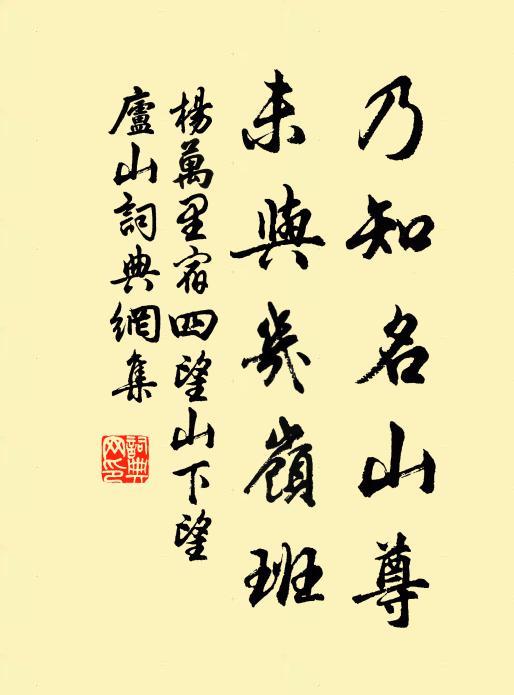 乃知名山尊
未與幾嶺班
楊萬里宿四望山下望
廬山詞典網集
詞典网印